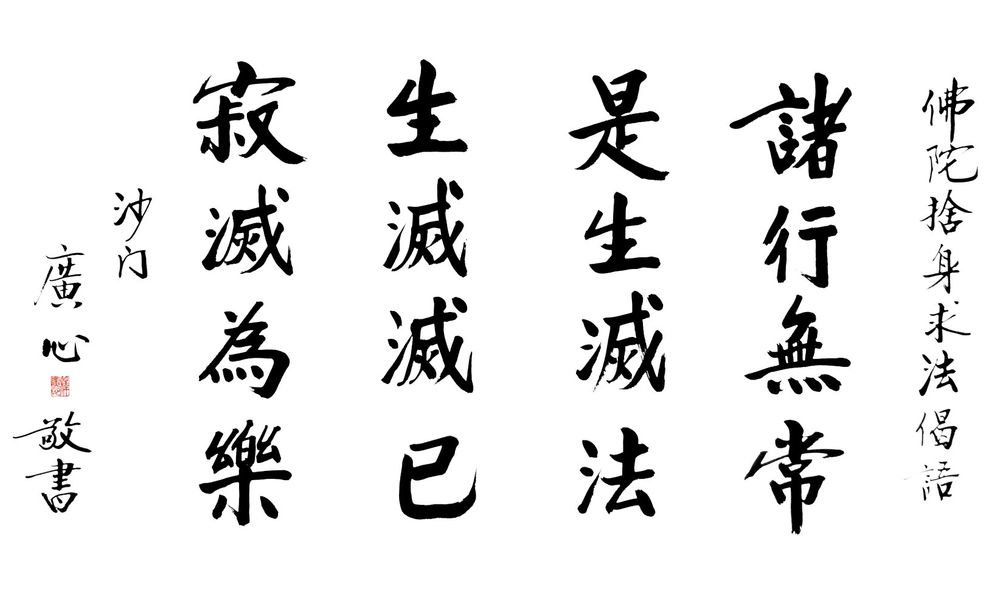 佛陀捨身求法偈語
諸行無常
是生滅法
生滅滅已
寂滅為樂
沙门
廣心
敬書